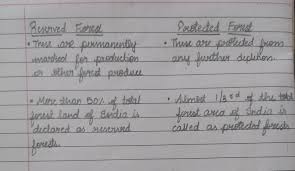 Reserved Forest
• These are permanently
marked for production
or other forest produce
• More than 50% of total
forest land of India is
declared as reserved
forests.
Protected Forest
• These are protected from
any further depletion.
• Almost 1/3rd of the total
forest area of India is
called as protected forests